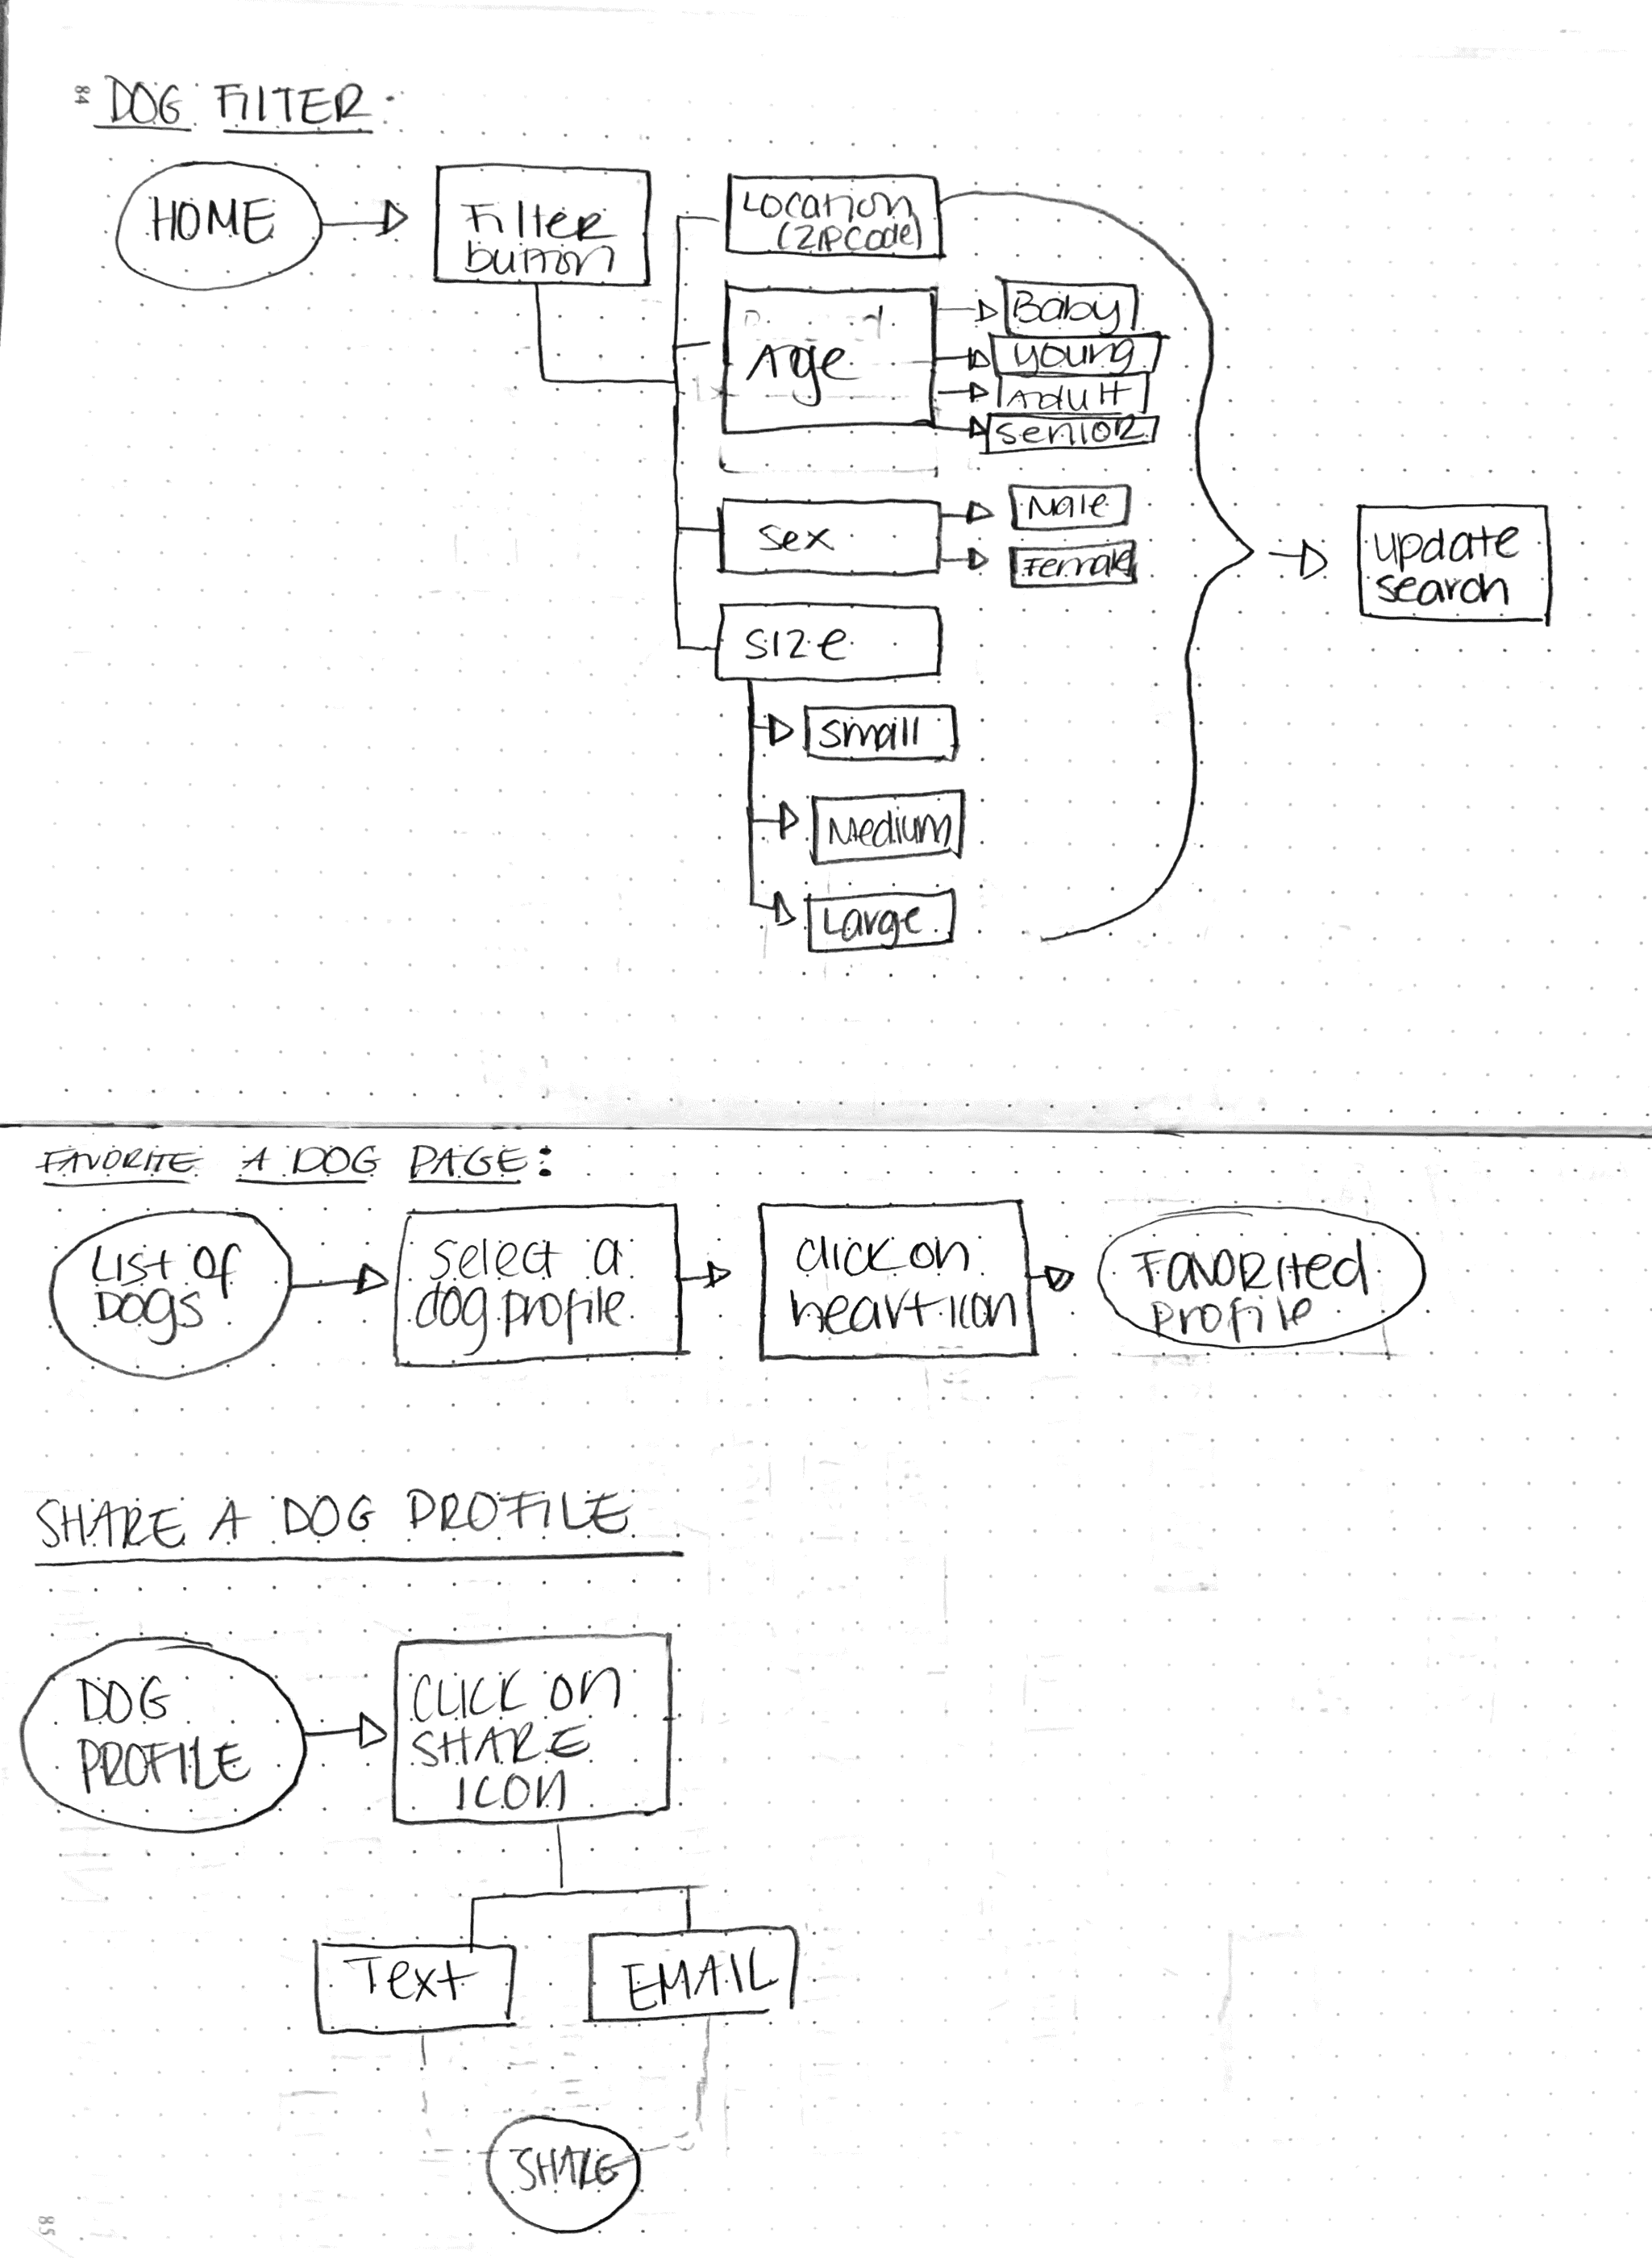 84
DOG FILTER:
HOME
Filter
button
Location
(ZIPCode)
Age
Baby
young
Adult
senior
sex
Male
Female
size
small
Medium
Large
update
search
FAVORITE A DOG PAGE:
List of
DOGS
select a
dog profile
click on
heart icon
FAVORited
profile
SHARE A DOG PROFILE
DOG
PROFILE
CLICK ON
SHARE
ICON
Text
EMAIL
SHARE
85